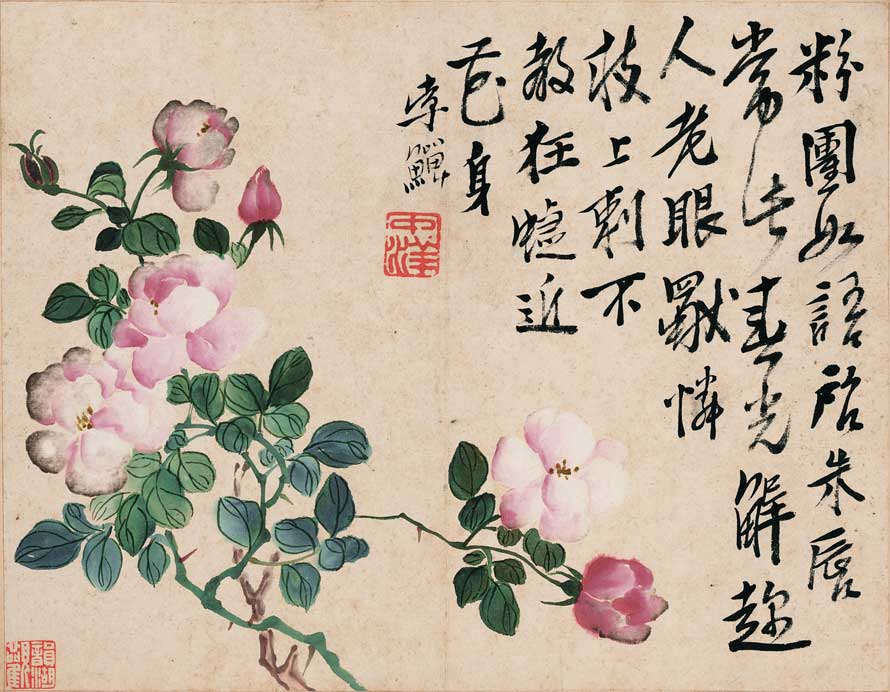 粉團如語啟朱唇
常春光解趁
人老眼憐
枝上刺不
教狂蜨近
花身
李鱓
中洋